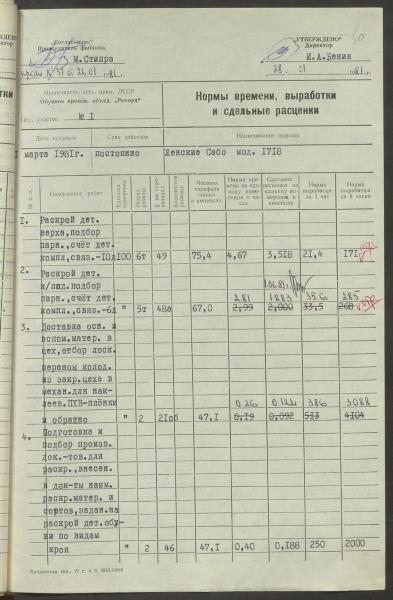 "Согласовано"
Председатель фабкома
М.Стипро
"УТВЕРЖДЕНО"
Директор
И.А.Бенин
28. 01 1981г.
Министерств. легк. пром. ЛССР
Обувное произв. объед. „Рекорд"
Цех, участок № 1
Нормы времени, выработки
и сдельные расценки
Дата введения
Срок действия
Наименование изделия
1 марта 1981г. постоянно
Женские Сабо мод. 1718
№ п. п.
Содержание работ
Единица измерения
Разряд работы
Часовая тарифная ставка в копейках
Норма времени на единицу измерения в часах
Сдельная расценка на единицу измерения в копейках
Норма выработки за 1 час
Норма выработки за 8 часов
1. Раскрой дет.
верха, подбор
пара., счёт дет.
компл., связ.-10д 100 6т 49 75,4 4,67 3,518 21,4 171
2. Раскрой дет.
к/под. подбор
пара., счёт дет.
2.81 1883 35.6 285
компл., связ.-6д " 5т 48а 67,0 2,99 2,000 33,5 268
3. Доставка осн. и
вспом. матер. в
цех, отбор лоск.
переноы колод.
из закр. цеха в
механ. для нак-
леев. ПХВ-плёнки
0.26 0.122 386 3088
и обратно " 2 210б 47,1 0,19 0,092 513 4104
4. Подготовка и
подбор произв.
док.-тов. для
раскр., внесен.
в док-ты наим.
раскр. матер. и
сортов, задан. на
раскрой дет. обу-
ви по видам
кроя " 2 46 47,1 0,40 0,188 250 2000